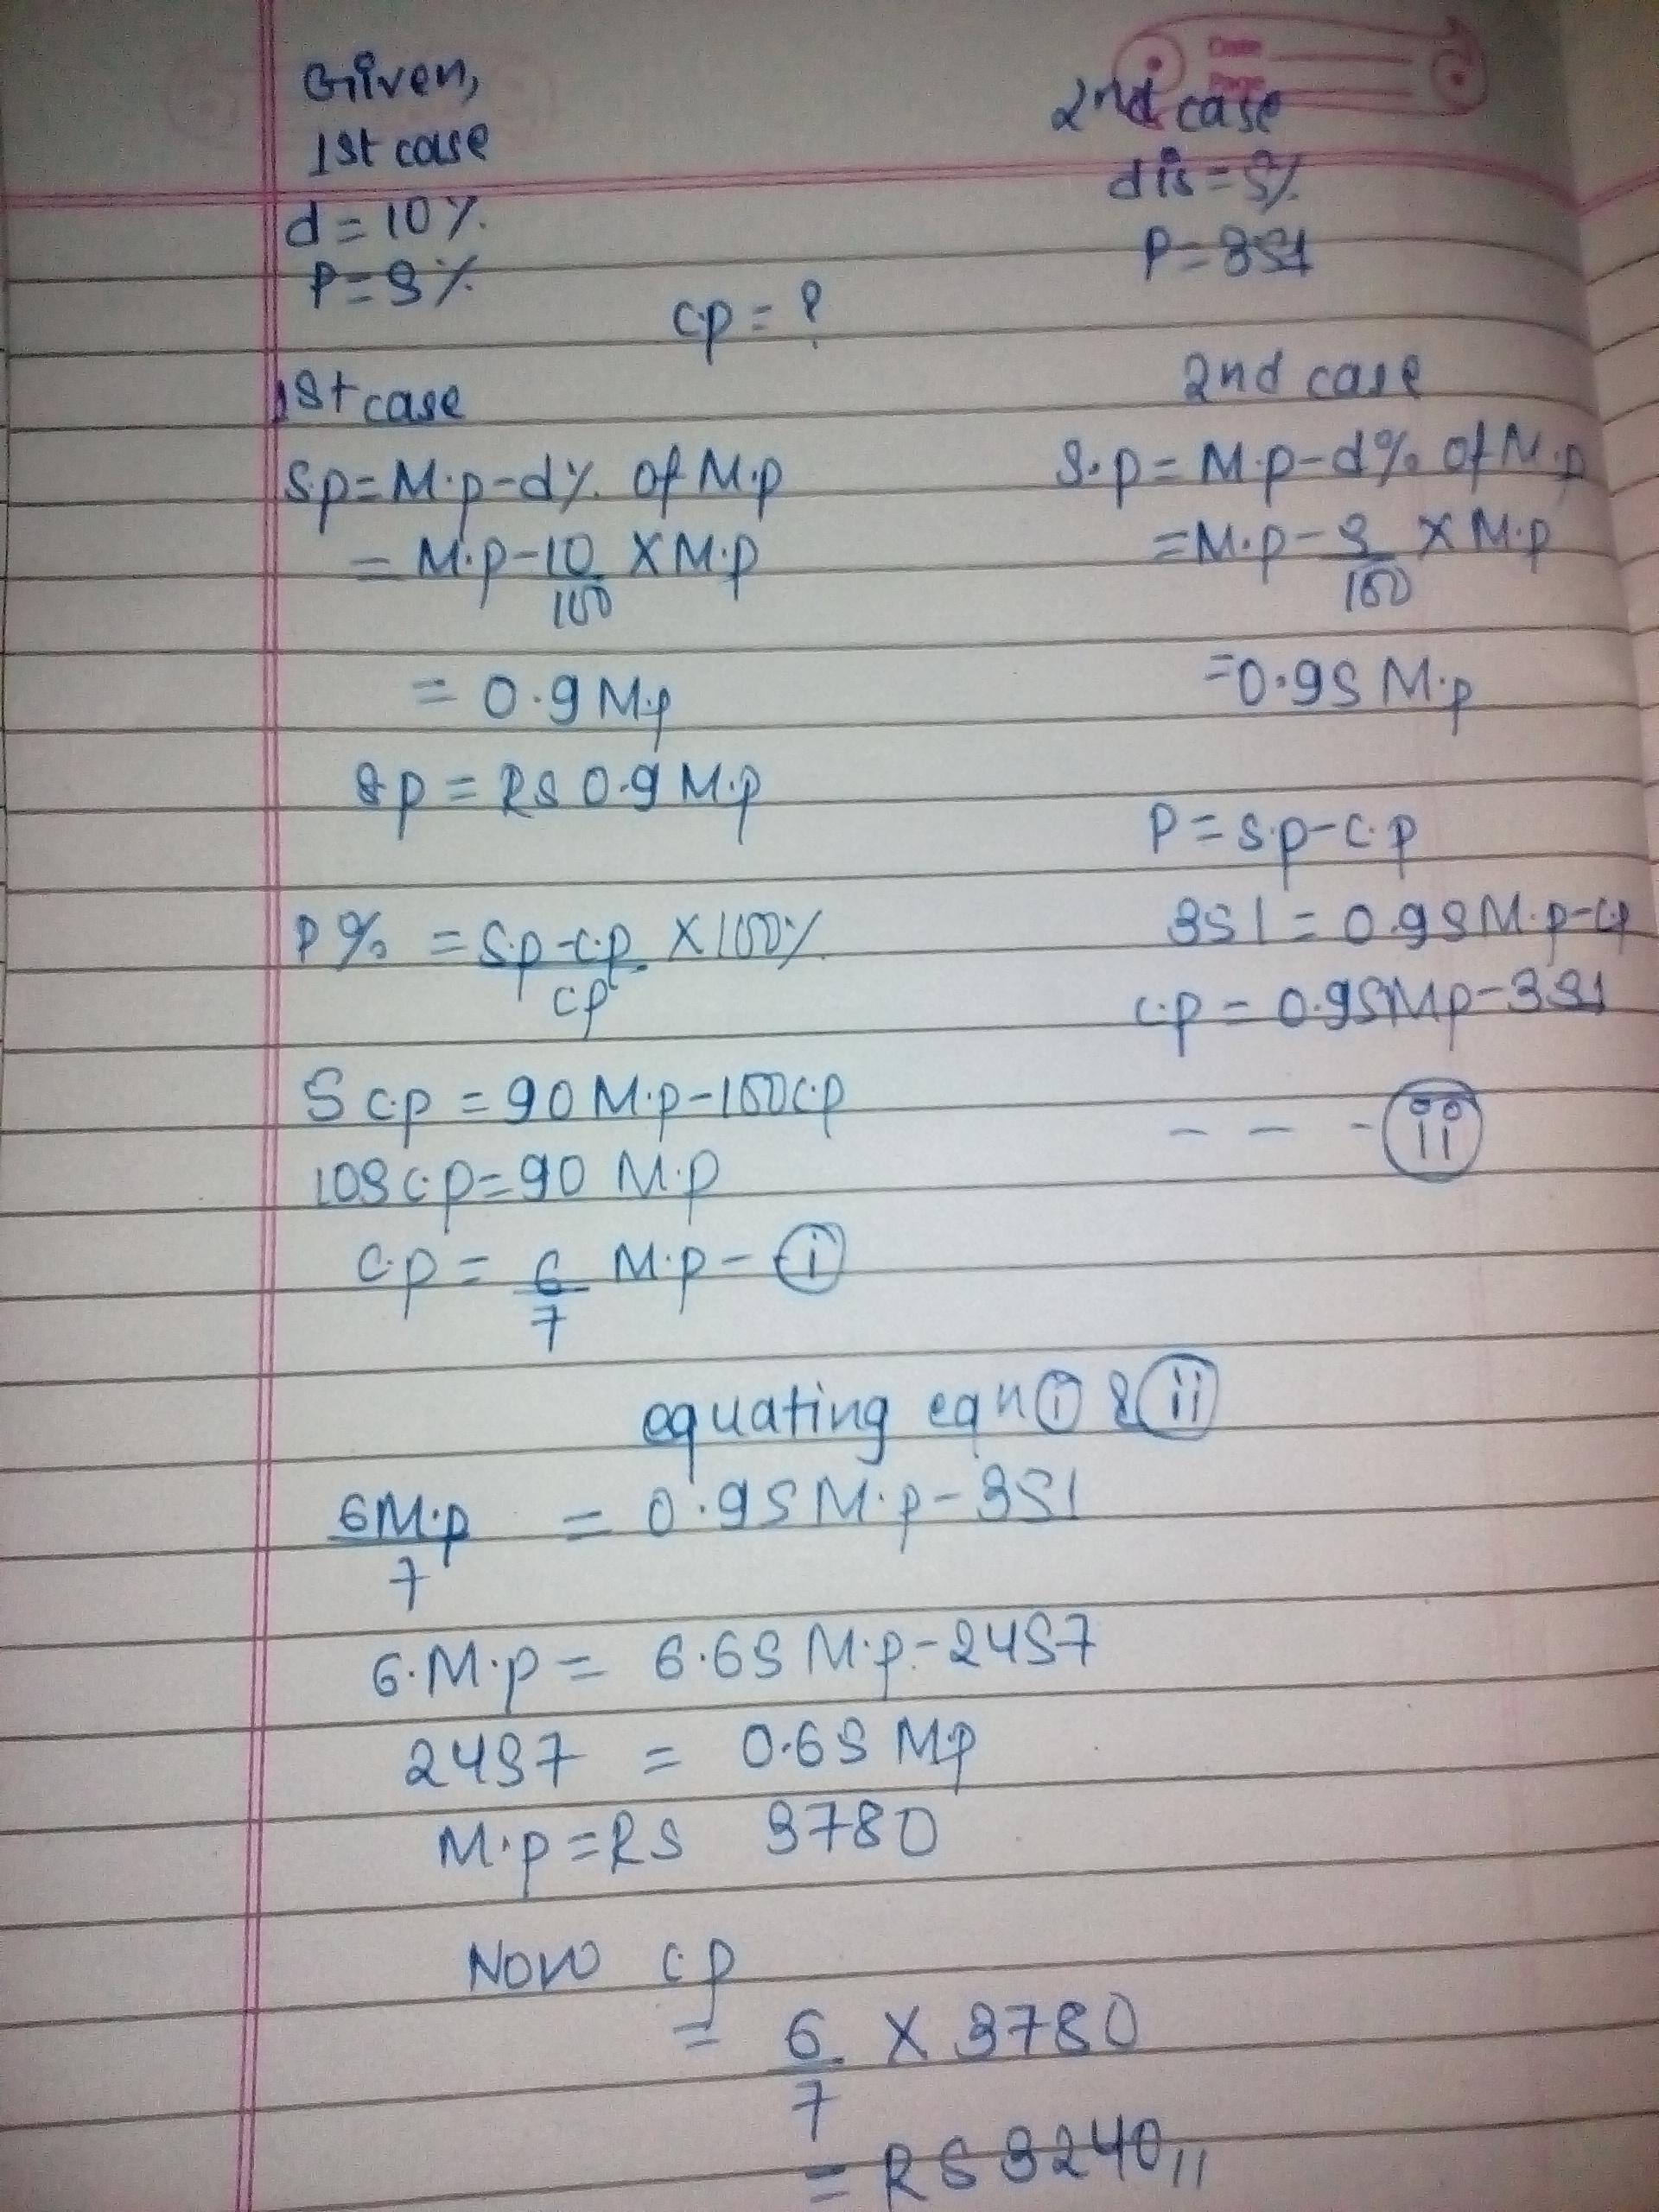 Date
Page
Given,
1st case
d = 10%
P = 5%
2nd case
dis = 5%
P = 351
c.p = ?
1st case
S.p = M.p - d% of M.p
= M.p - 10/100 X M.p
= 0.9 M.p
S.p = RS 0.9 M.p
P% = S.p - c.p / c.p X 100%
5 c.p = 90 M.p - 100 c.p
105 c.p = 90 M.p
c.p = 6/7 M.p - (i)
2nd case
S.p = M.p - d% of M.p
= M.p - 5/100 X M.p
= 0.95 M.p
P = S.p - c.p
351 = 0.95 M.p - c.p
c.p = 0.95 M.p - 351
- - - (ii)
equating eqn (i) & (ii)
6 M.p / 7 = 0.95 M.p - 351
6. M.p = 6.65 M.p - 2457
2457 = 0.65 M.p
M.p = RS 3780
Now c.p
= 6/7 X 3780
= RS 3240 //